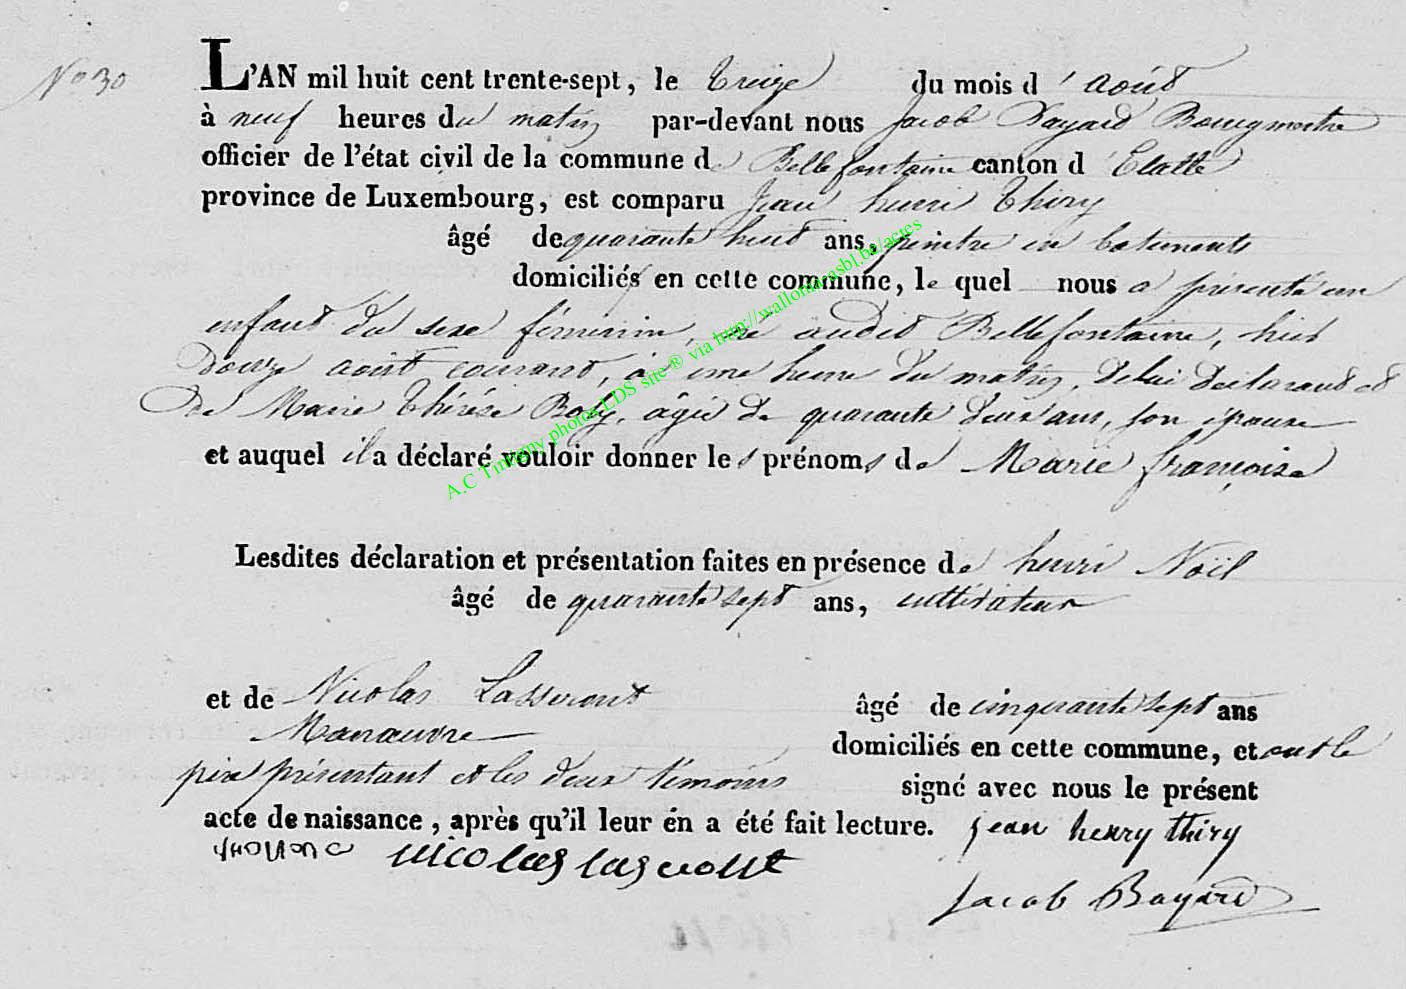 N° 30
L'AN mil huit cent trente-sept, le treize du mois d'août
à neuf heures du matin par-devant nous Jacob Bayard Bourgmestre
officier de l'état civil de la commune de Bellefontaine canton d'Etalle
province de Luxembourg, est comparu Jean henri Thiry
âgé de quarante huit ans, peintre en batiments
domiciliés en cette commune, le quel nous a présenté un
enfant du sexe féminin, né audit Bellefontaine, hier
Douze août courant, à une heure du matin, De lui Déclarant et
De Marie Thérèse, âgée De quarante deux ans, son épouse
et auquel il a déclaré vouloir donner les prénoms de Marie françoise
Lesdites déclaration et présentation faites en présence de henri Noël
âgé de quarante sept ans, cultivateur
et de Nicolas Lassront âgé de cinquante sept ans
Manœuvre domiciliés en cette commune, et ont le
père présentant et les deux témoins signé avec nous le présent
acte de naissance, après qu'il leur en a été fait lecture. jean henry thiry
nicolas
Jacob Bayard
A.C Tintigny photos LDS site ® via http://wallonia.asbl.be/actes